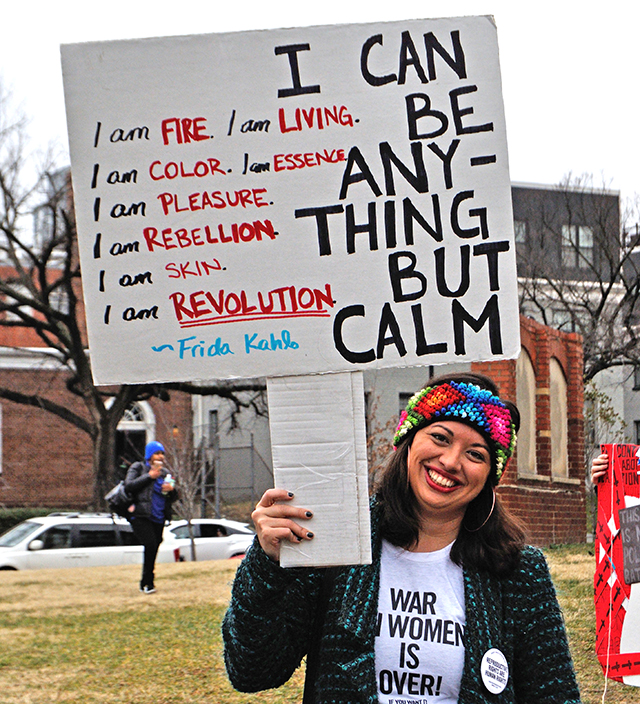 I am FIRE. I am LIVING.
I am COLOR. I am ESSENCE.
I am PLEASURE.
I am REBELLION.
I am SKIN.
I am REVOLUTION.
~ Frida Kahlo
I CAN
BE
ANY-
THING
BUT
CALM
WAR
WOMEN
IS
OVER!
IF YOU WANT
REPRODUCTIVE
RIGHTS ARE
HUMAN RIGHTS